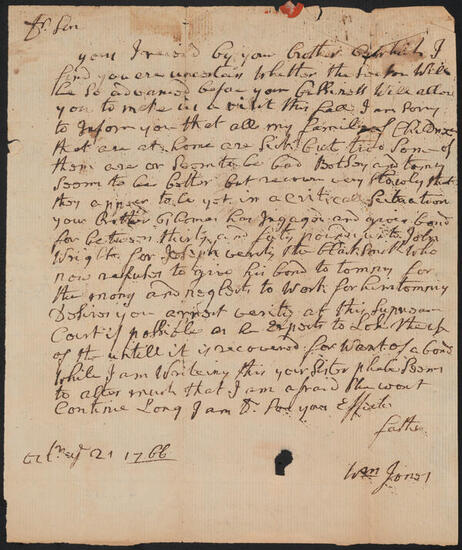 Dr. Son
yours I received by your brother by which I
find you are uncertain whether the Season Will
be So advanced before your Will allow
you to make us a visit this fall I am Sorry
to Inform you that all my familie of Children
that are at home are Sick but two Some of
them are or Seem to be bad Botson and tomy
Seem to be better but recover very slowly that
they appear to be yet in a critical Situation
your Brother has Ingaged and given bond
for between thirty and fifty pounds unto John
Wright for Joseph verity the blacksmith Who
now refuses to give his bond to tommy for
the mony and neglects to work for him tommy
Desires you arrest verity at this Supream
Court if possible as he Expects to Lose the use
of the untill it is recovered for Want of a bond
While I am Writeing this your Sister phebe Seems
to alter much that I am afraid She wont
Continue Long I am Dr. Son your Effect
father
21 1766
Wm Jones